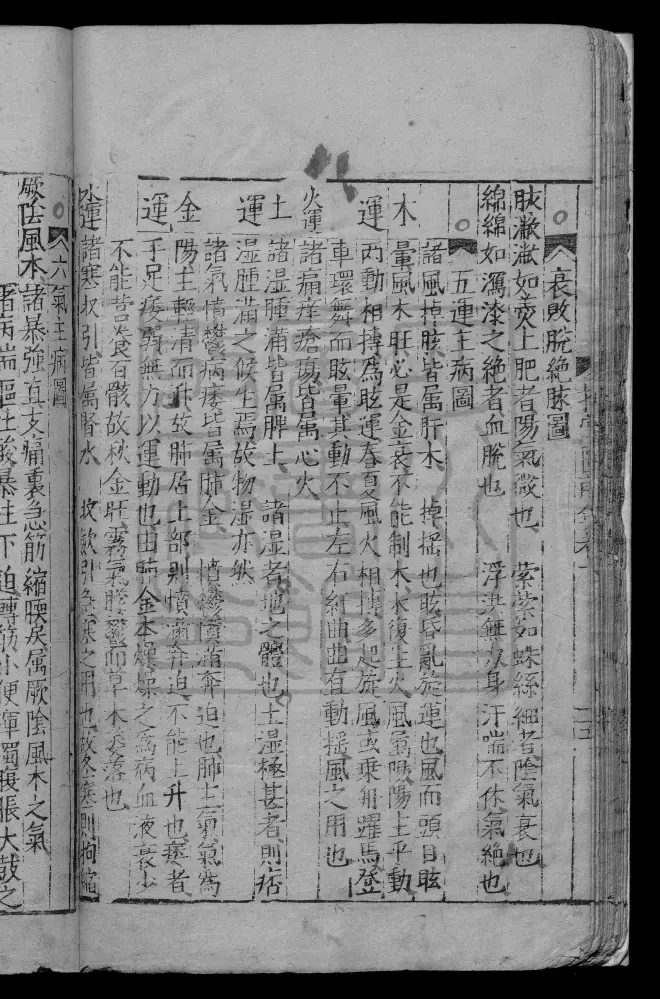 衰敗脫絕脉圖
脉漐漐如羮上肥者陽氣微也 縈縈如蛛絲細者陰氣衰也
綿綿如瀉漆之絕者血脫也 浮洪無次身汗喘不休氣絕也
五運主病圖
諸風掉眩皆屬肝木 掉搖也眩昏亂旋運也風而頭目眩
木 暈風木旺必是金衰不能制木木復生火風屬陽陽主乎動
運 两動相搏為眩運春夏風火相搏多起旋風或乗舟躍馬登
車環舞而眩暈其動不止左右紆曲曲直動搖風之用也
火運 諸痛痒瘡瘍皆屬心火
土 諸湿腫滿皆属脾土 諸湿者地之體也土湿極甚者則痞
運 湿腫滿之候生焉故物湿亦然
諸氣憤鬱病痿皆属肺金 憤鬱憤滿奔迫也肺主氣氣為
金 陽主輕清而升故肺居上部則憤滿奔迫不能上升也痿者
運 手足痿弱無力以運動也由肺金本燥燥之為病血液衰少
不能營養百骸故秋金旺霧氣朦鬱而草木萎落也
水運 諸寒收引皆属腎水 收歛引急寒之用也故冬寒則拘縮
六氣主病圖
厥陰風木 諸暴強直支痛裏急筋縮䐜戾属厥陰風木之氣
諸病喘嘔吐酸暴注下迫轉筋小便渾濁腹脹大鼓之